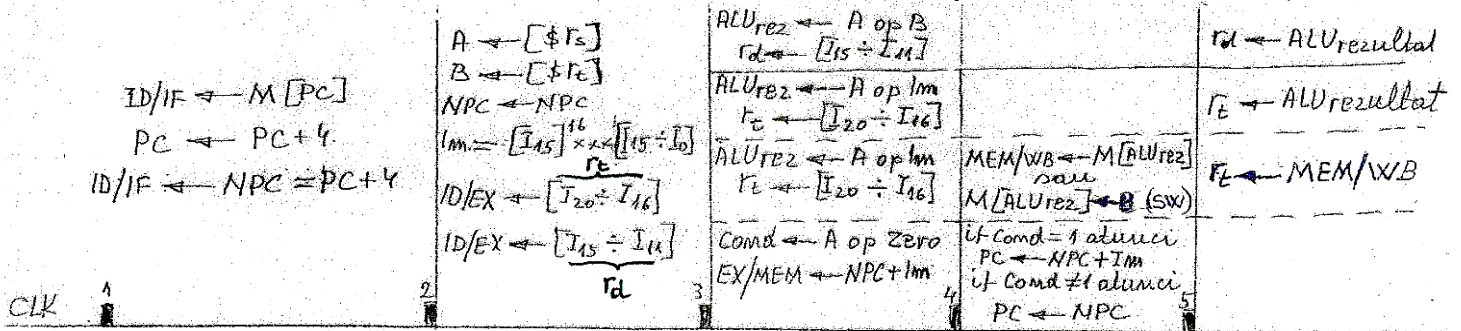 ID/IF ← M[PC]
PC ← PC+4
ID/IF ← NPC = PC+4
A ← [$rs]
B ← [$rt]
NPC ← NPC
Im = [I15]^16 ××× [I15 ÷ I0]
rt
ID/EX ← [I20 ÷ I16]
ID/EX ← [I15 ÷ I11]
rd
ALUrez ← A op B
rd ← [I15 ÷ I11]
ALUrez ← A op Im
rt ← [I20 ÷ I16]
ALUrez ← A op Im
rt ← [I20 ÷ I16]
Cond ← A op Zero
EX/MEM ← NPC+Im
MEM/WB ← M[ALUrez]
sau
M[ALUrez] ← B (SW)
if Cond = 1 atunci
PC ← NPC+Im
if Cond ≠ 1 atunci
PC ← NPC
rd ← ALUrezultat
rt ← ALUrezultat
rt ← MEM/WB
CLK 1 2 3 4 5